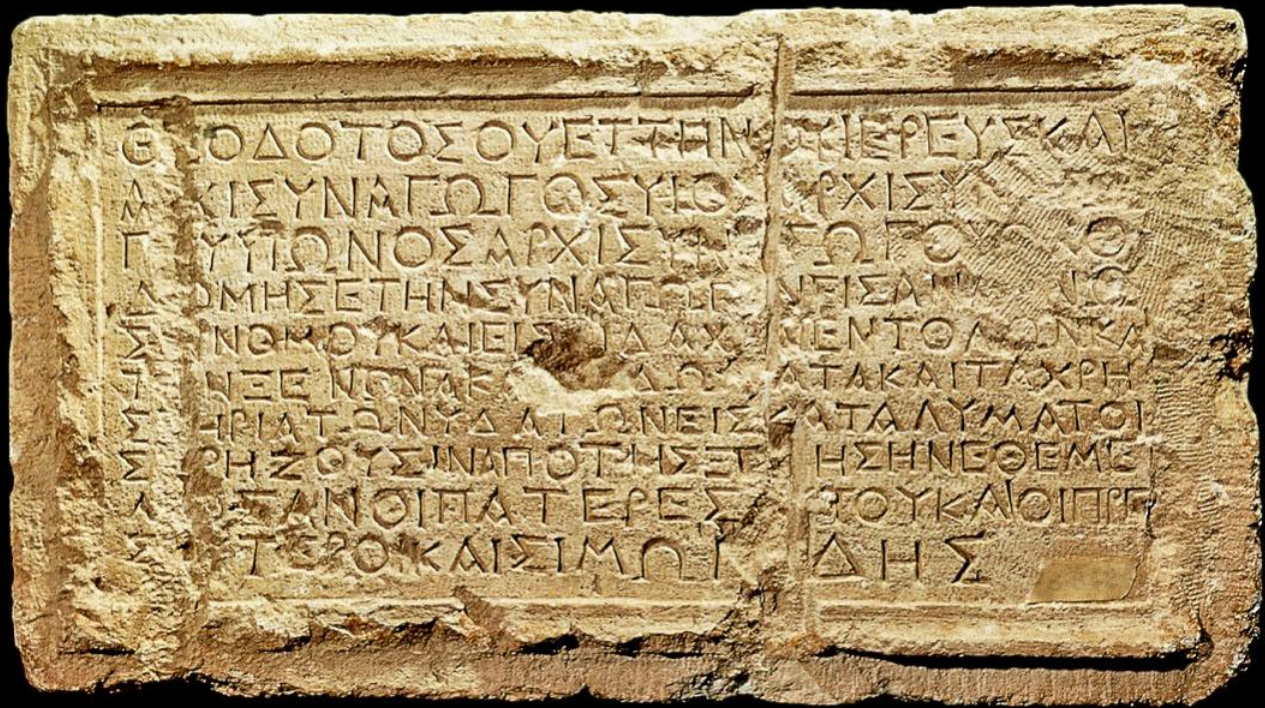 Θ ΟΔΟΤΟΣ ΟΥΕΤΤΗΝ Υ ΙΕΡΕΥΣ ΚΑΙ
Α ΧΙΣΥΝΑΓΩΓΟΣ ΥΙΟΣ ΑΡΧΙΣΥ
Γ Υ ΥΙΩΝΟΣ ΑΡΧΙΣΥΝ ΓΩΓΟΥ ΩΚΟ
ΔΟΜΗΣΕ ΤΗΝ ΣΥΝΑΓΩΓ Ν ΕΙΣ ΑΝ ΝΩ
Σ Ν ΝΟΜΟΥ ΚΑΙ ΕΙΣ ΙΔΑΧ Ν ΕΝΤΟΛΩΝ ΚΑΙ
Τ Ν ΞΕΝΩΝΑ ΚΑ ΔΩΜΑΤΑ ΚΑΙ ΤΑ ΧΡΗ
Σ ΗΡΙΑ ΤΩΝ ΥΔΑΤΩΝ ΕΙΣ ΚΑΤΑΛΥΜΑ ΤΟΙ
Σ ΡΗΖΟΥΣΙΝ ΑΠΟ ΤΗΣ ΞΕ ΗΣ ΗΝ ΕΘΕΜΕ
Λ ΣΑΝ ΟΙ ΠΑΤΕΡΕΣ ΥΤΟΥ ΚΑΙ ΟΙ ΠΡΕ
Σ ΥΤΕΡΟΙ ΚΑΙ ΣΙΜΩΝ ΔΗΣ